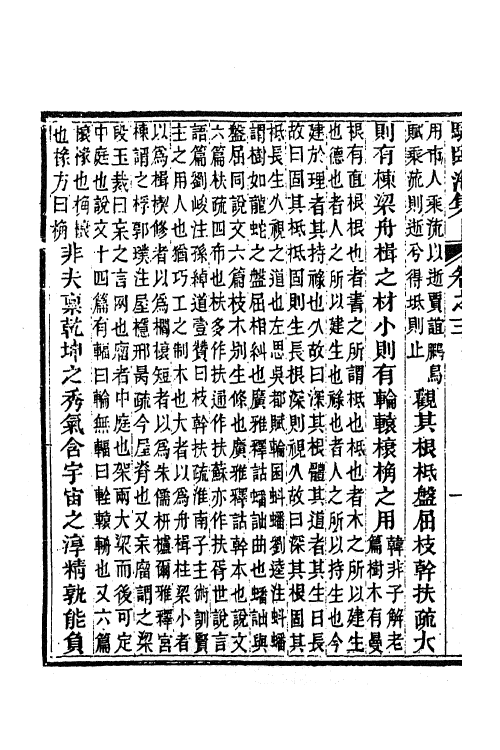 駱臨海集 卷之三 一
用市人乘流以逝賈誼鵩鳥
賦乘流則逝兮得坻則止
觀其根柢盤屈枝幹扶疏大
則有棟梁舟楫之材小則有輪轅榱桷之用
韓非子解老
篇樹木有曼
根有直根根也者書之所謂柢也柢也者木之所以建生
也德也者人之所以建生也祿也者人之所以持生也今
建於理者其持祿也久故曰深其根體其道者其生日長
故曰固其柢柢固則生長根深則視久故曰深其根固其
柢長生久視之道也左思吳都賦輪囷蚪蟠劉逵注蚪蟠
謂樹如龍蛇之盤屈相糾也廣雅釋詁蟠詘曲也蟠詘與
盤屈同說文六篇枝木別生條也廣雅釋詁幹本也說文
六篇枎疏四布也枎多作扶通作扶蘇亦作扶胥世說言
語篇劉峻注孫綽道壹贊曰枝幹扶疏淮南子主術訓賢
主之用人也猶巧工之制木也大者以為舟楫柱梁小者
以為楫楔修者以為櫩榱短者以為朱儒枅櫨爾雅釋宮
棟謂之桴郭璞注屋檼邢昺疏今屋脊也又杗廇謂之梁
段玉裁曰杗之言网也廇者中庭也架兩大梁而後可定
中庭也說文十四篇有輻曰輪無輻曰輇轅輈也又六篇
榱椽也桷榱
也椽方曰桷
非夫稟乾坤之秀氣含宇宙之淳精孰能負